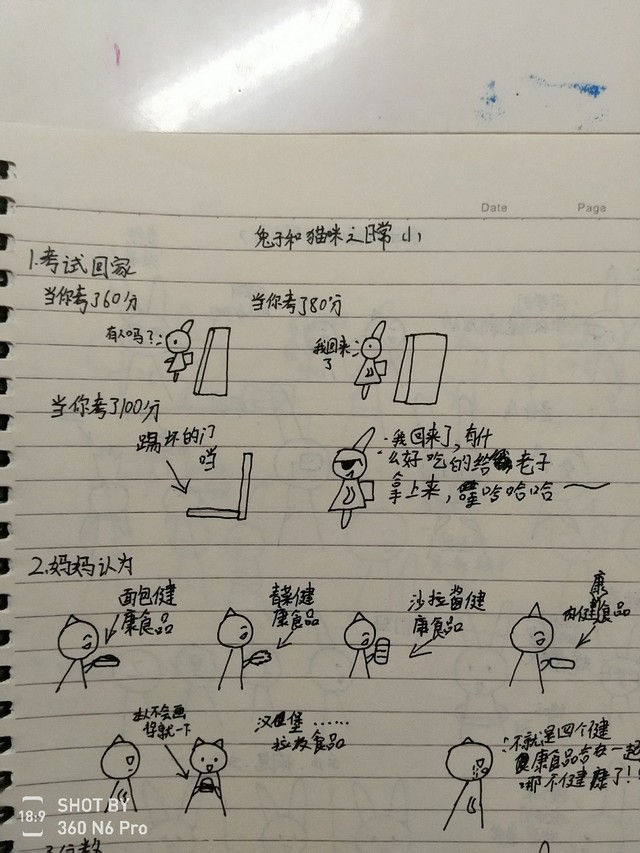 Date Page
兔子和猫咪之日常(1)
1.考试回家
当你考了60分
当你考了80分
有人吗?
我回来
了
当你考了100分
踢坏的门
当
我回来了,有什
么好吃的给老子
拿上来,哈哈哈哈
2.妈妈认为
面包健
康食品
青菜健
康食品
沙拉酱健
康食品
康
肉健食品
本人不会画
将就一下
汉堡堡……
垃圾食品
不就是四个健
康食品合在一起
哪不健康了!!
3.分数
18:9
SHOT BY
360 N6 Pro